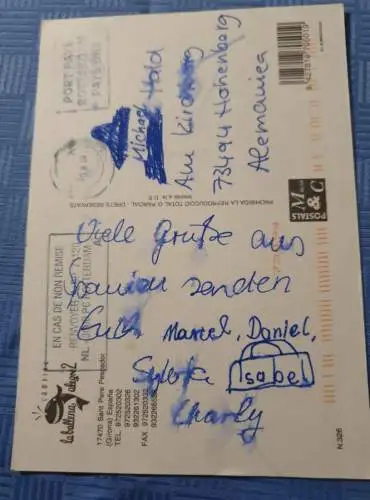 PORT PAYÉ
PAYS BAS
Michael Hold
Am Kirchberg
73494 Hohenberg
Alemania
PROHIBIDA LA REPRODUCCIÓ TOTAL O PARCIAL - DRETS RESERVATS
POSTALS M & C
Viele Grüße aus
Spanien senden
Euch Marcel, Daniel,
Sylvia Isabel
Charly
EN CAS DE NON REMISE
RENVOYER
NL PC AMSTERDAM
càmping
la ballena alegre 2
17470 Sant Pere Pescador
(Girona) España
TEL. 972520302
972520326
932261302
FAX 972520332
N 326